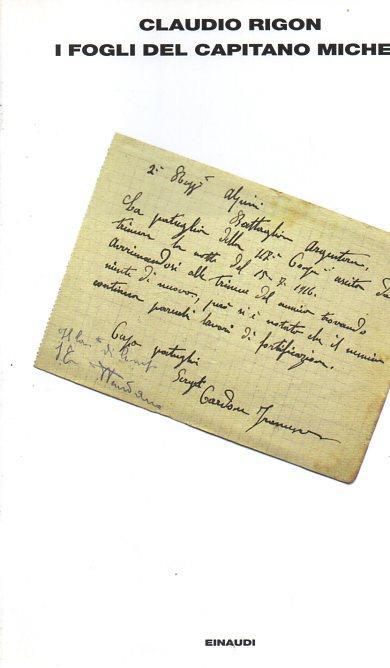 CLAUDIO RIGON
I FOGLI DEL CAPITANO MICHE
2° Regg° Alpini
Battaglion Argentera
La pattuglia della 117ª Comp. uscita
trincea la notte del 15-7-1916.
Avvicinandosi alle trincee del nemico trovando
niente di nuovo, però si è notato che il nemico
continua parecchi lavori di fortificazione.
Capo pattuglia
Serg.te
Cardone
EINAUDI